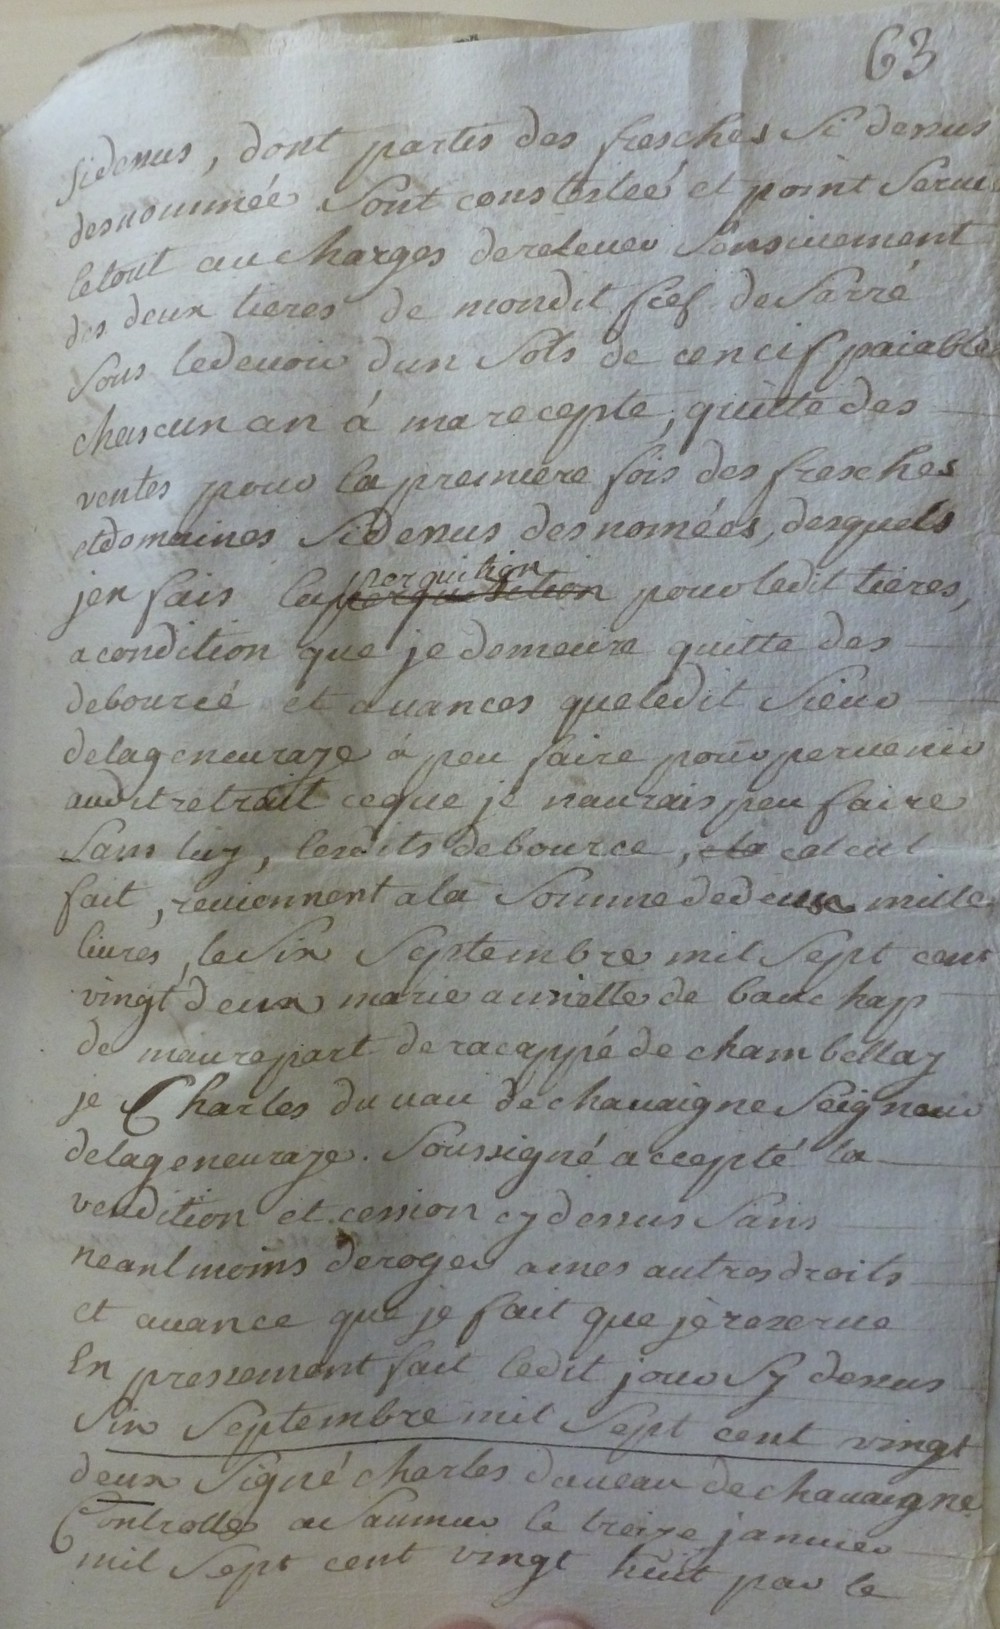 63
sidenus, dont partis des fresches Si denus
desnommée Sont constesteé et point Servie
letout au charges dereleuer Sensivement
des deux tieres de mondit fief de Sarré
Sous ledevoir dun Sols de cencif paiable
chascun an á ma recepte, quitte des
ventes pour la premiere fois des fresches
etdomaines Sidenus desnomées, desquels
jen fais la perquition pour ledit tieres,
acondition que je demeure quitte des
debourcé et auances queledit Sieur
delageneuraye á peu faire pour peruenir
audit retrait ceque je naurais peu faire
Sans luy, lesdits debource, calcul
fait, reuiennent ala Somme dedeux mille
liures, le Six Septembre mil Sept cent
vingt deux marie anriette de bauchap
de maurepart deracappé de chambellay
je Charles du uau de chauaigne Seigneur
delageneuraye. Soussigné accepté la
vendition et cession cy dessus Sans
neantmoins deroger ames autres droits
et auance que je fait que je reserue
En pressement fait ledit jour Sy dessus
Six Septembre mil Sept cent vingt
deux Signé charles duueau dechauaigne
Controlle a Saumur le treize januier
mil Sept cent vingt huit par le